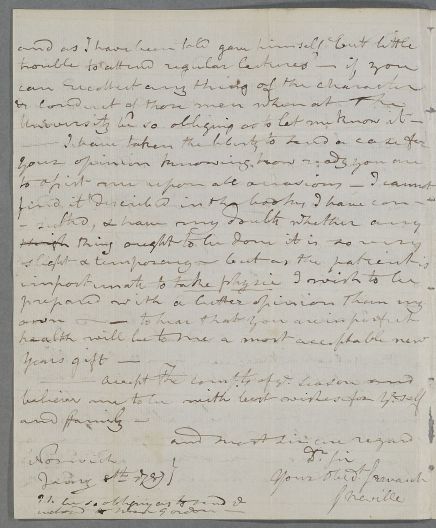 and as I have been told gave himself but little
trouble to attend regular lectures — if you
can recollect any thing of the character
or conduct of those men when at the
University be so obliging as to let me know it —
— I have taken the liberty to send a case for
your opinion knowing how ready you are
to assist me upon all occasions — I cannot
find it described in the books I have con-
-sulted, & have my doubts whether any
thing ought to be done it is so very
slight & temporary but as the patient is
importunate to take physic I wish to be
prepared with a better opinion than my
own — to hear that you are in perfect
health will be to me a most acceptable new
years gift —
— accept the compts. of ye. season and
believe me to be with best wishes for yr. self
and family —
and most sincere regard
Dr. Sir
Your obedt. servant
J Neville
Norwich
Jany 8th 1787